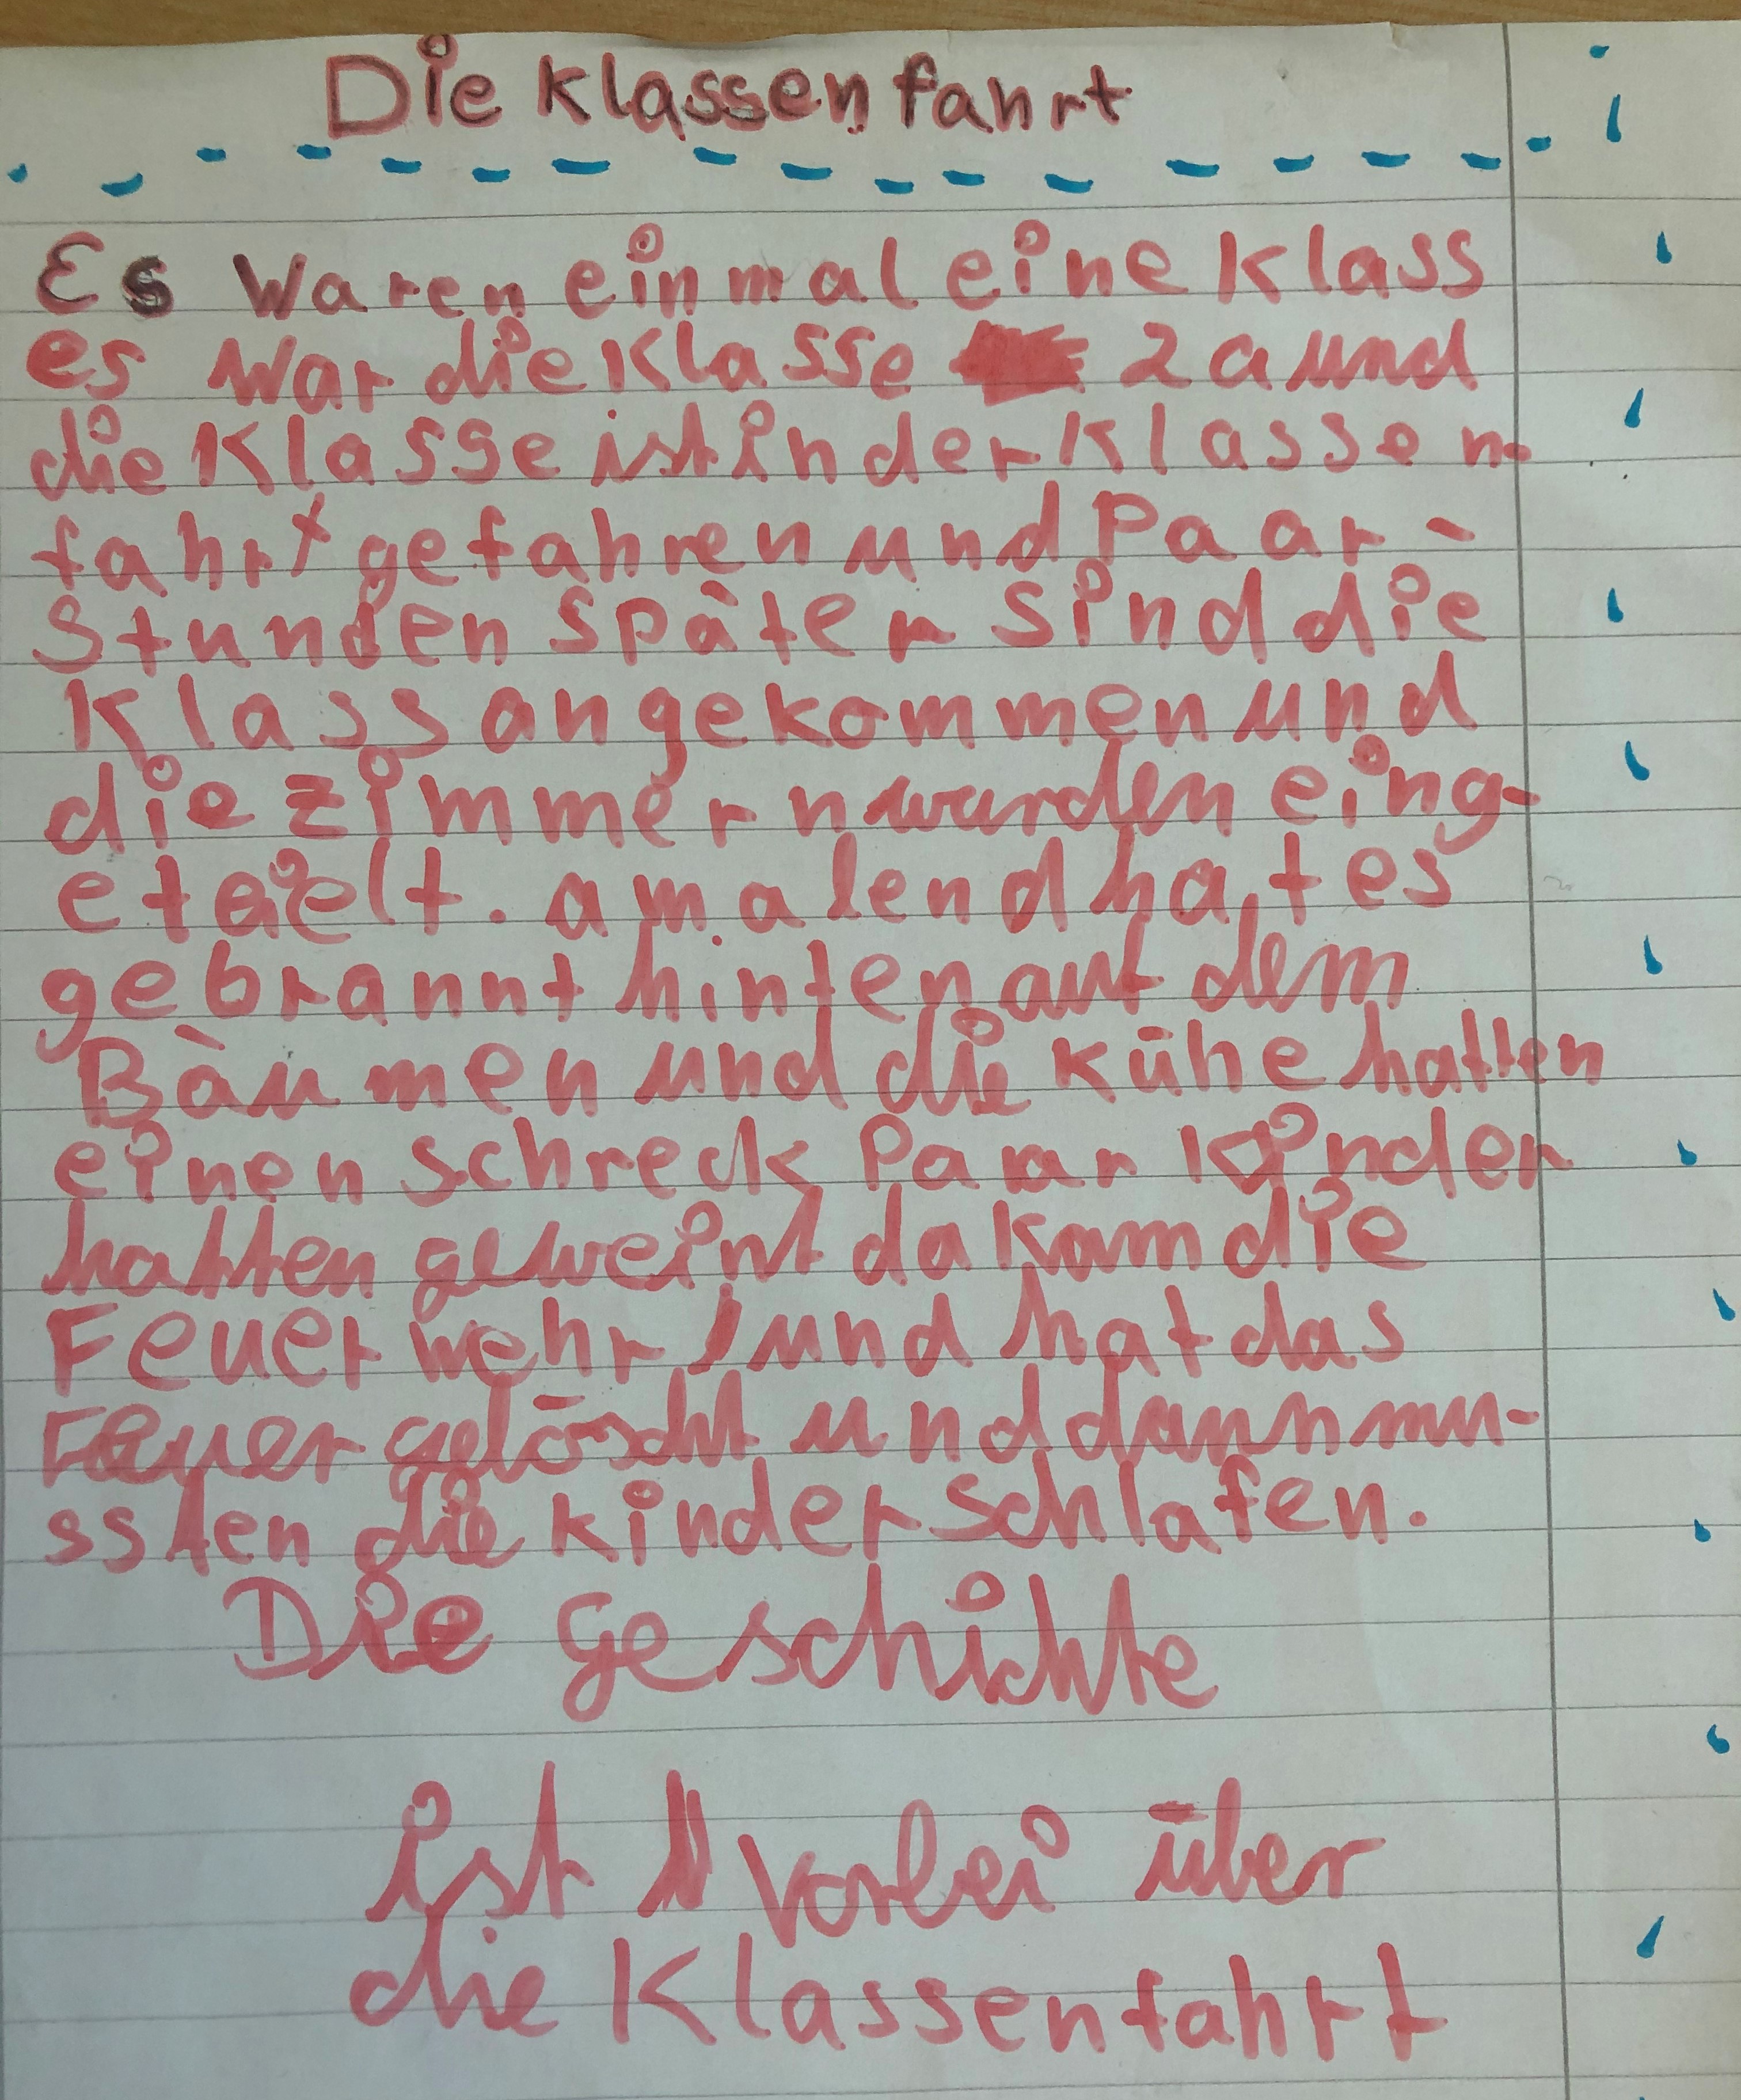 Die Klassenfahrt
Es waren einmal eine Klass
es war die Klasse 2a und
die Klasse ist in der Klassen-
fahrt gefahren und Paar-
Stunden später sind die
Klass angekommen und
die zimmern wurden eing-
eteielt. am alend hat es
gebrannt hinten auf dem
Bäumen und die kühe hatten
einen schreck Paar Kinder
hatten geweint da kam die
Feuerwehr und hat das
Feuer gelöscht und dann mu-
ssten die kinder schlafen.
Die geschichte
ist vorbei über
die Klassenfahrt